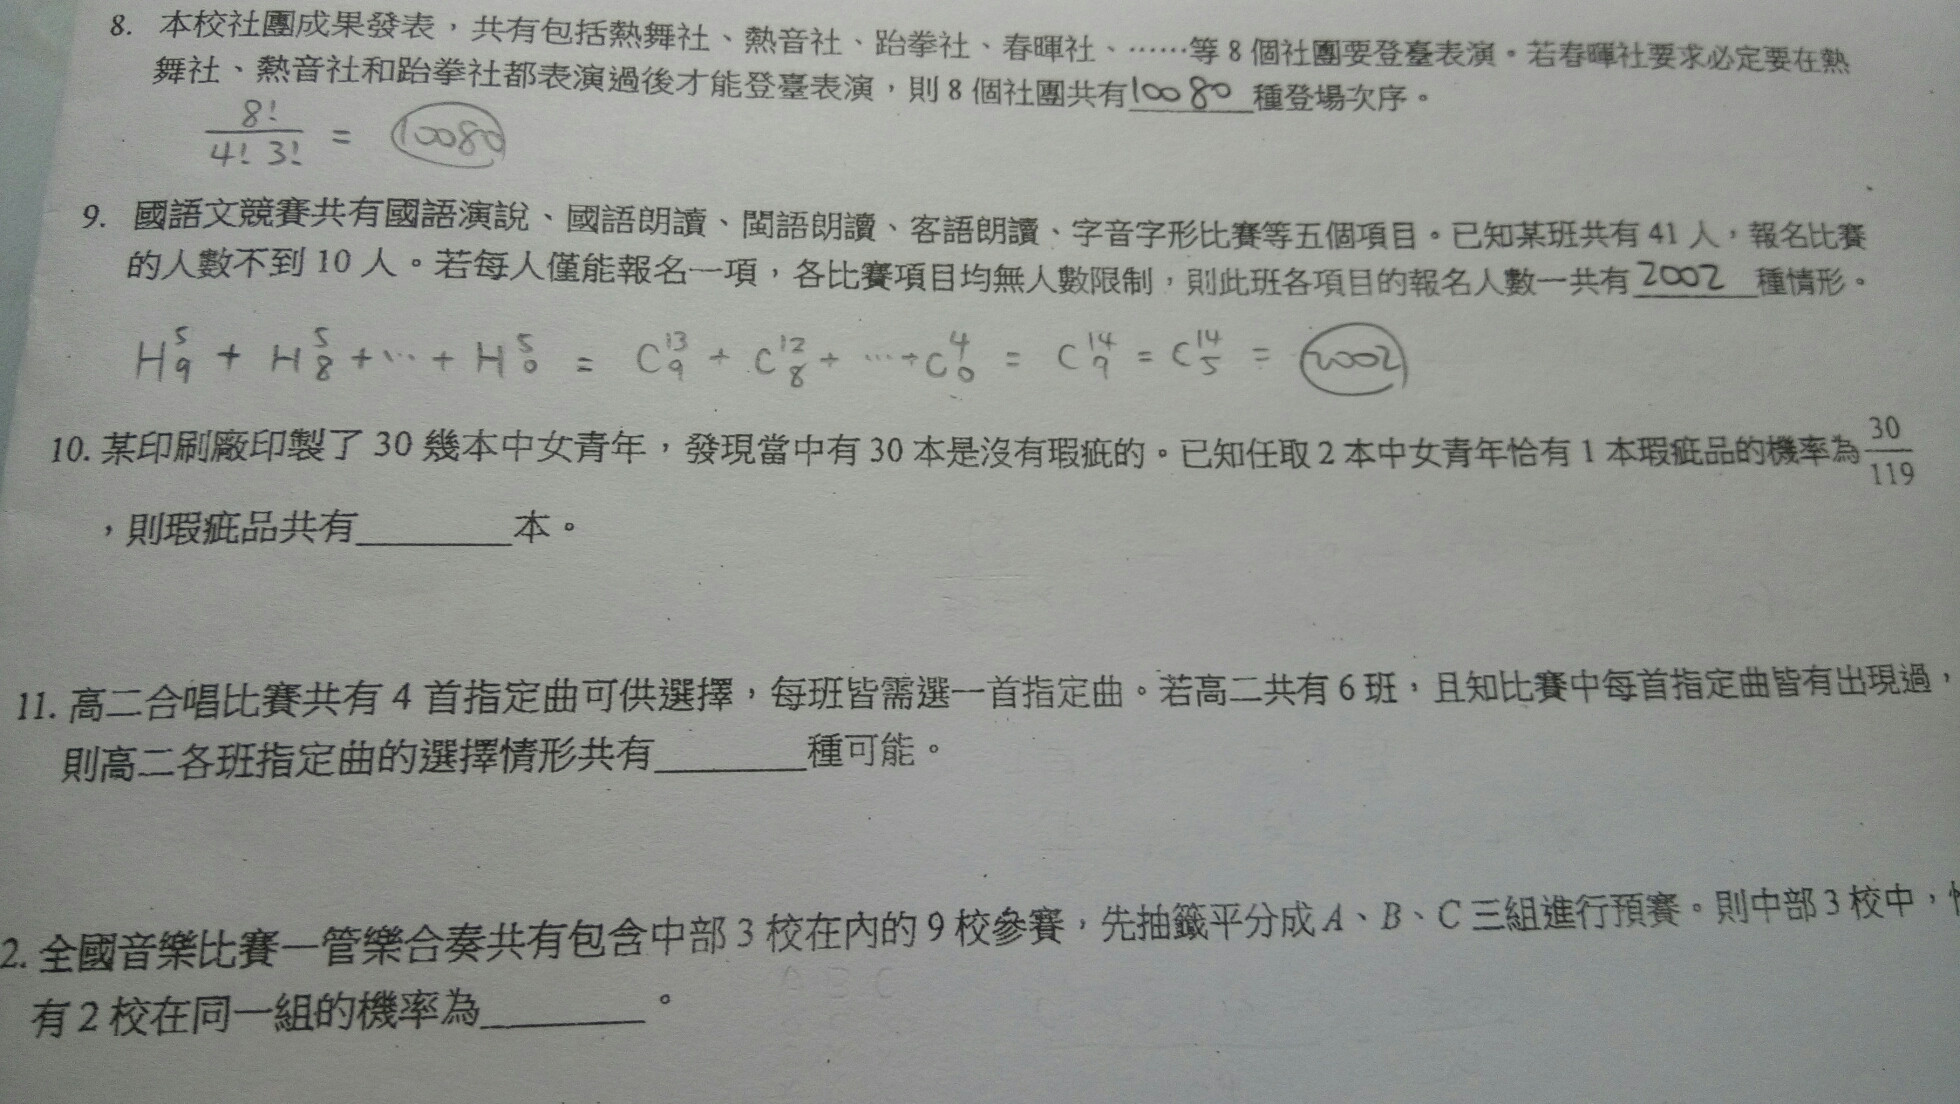 8. 本校社團成果發表，共有包括熱舞社、熱音社、跆拳社、春暉社、……等 8 個社團要登臺表演。若春暉社要求必定要在熱
舞社、熱音社和跆拳社都表演過後才能登臺表演，則 8 個社團共有10080種登場次序。
8!/4! 3! = 10080
9. 國語文競賽共有國語演說、國語朗讀、閩語朗讀、客語朗讀、字音字形比賽等五個項目。已知某班共有 41 人，報名比賽
的人數不到 10 人。若每人僅能報名一項，各比賽項目均無人數限制，則此班各項目的報名人數一共有2002種情形。
H⁵₉ + H⁵₈ + … + H⁵₀ = C¹³₉ + C¹²₈ + … + C⁴₀ = C¹⁴₉ = C¹⁴₅ = 2002
10. 某印刷廠印製了 30 幾本中女青年，發現當中有 30 本是沒有瑕疵的。已知任取 2 本中女青年恰有 1 本瑕疵品的機率為 30/119
，則瑕疵品共有______本。
11. 高二合唱比賽共有 4 首指定曲可供選擇，每班皆需選一首指定曲。若高二共有 6 班，且知比賽中每首指定曲皆有出現過，
則高二各班指定曲的選擇情形共有______種可能。
2. 全國音樂比賽—管樂合奏共有包含中部 3 校在內的 9 校參賽，先抽籤平分成 A、B、C 三組進行預賽。則中部 3 校中，
A B C
有 2 校在同一組的機率為______。